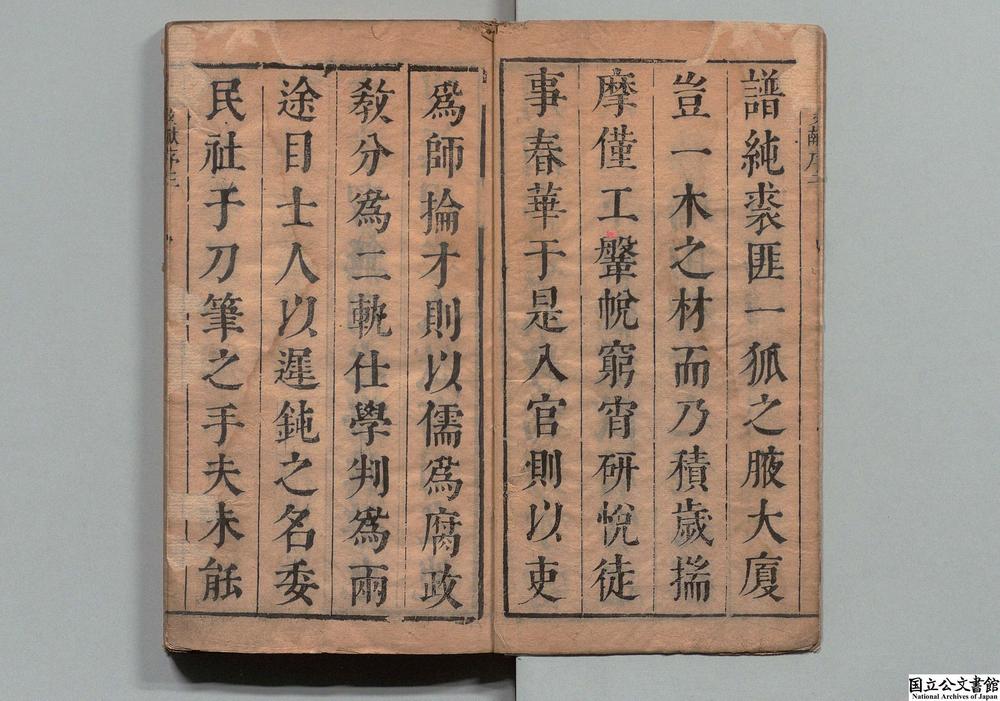 譜純裘匪一狐之腋大廈
豈一木之材而乃積歲揣
摩僅工鞶帨窮宵研悅徒
事春華于是入官則以吏
爲師掄才則以儒爲腐政
敎分爲二軌仕學判爲兩
途目士人以遲鈍之名委
民社于刀筆之手夫未能
国立公文書館
National Archives of Japan